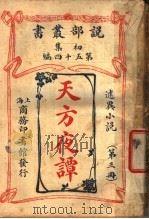 說部叢書
初集
第五十四編
述異小說
(第三冊)
天方夜譚
上海商務印書館發行